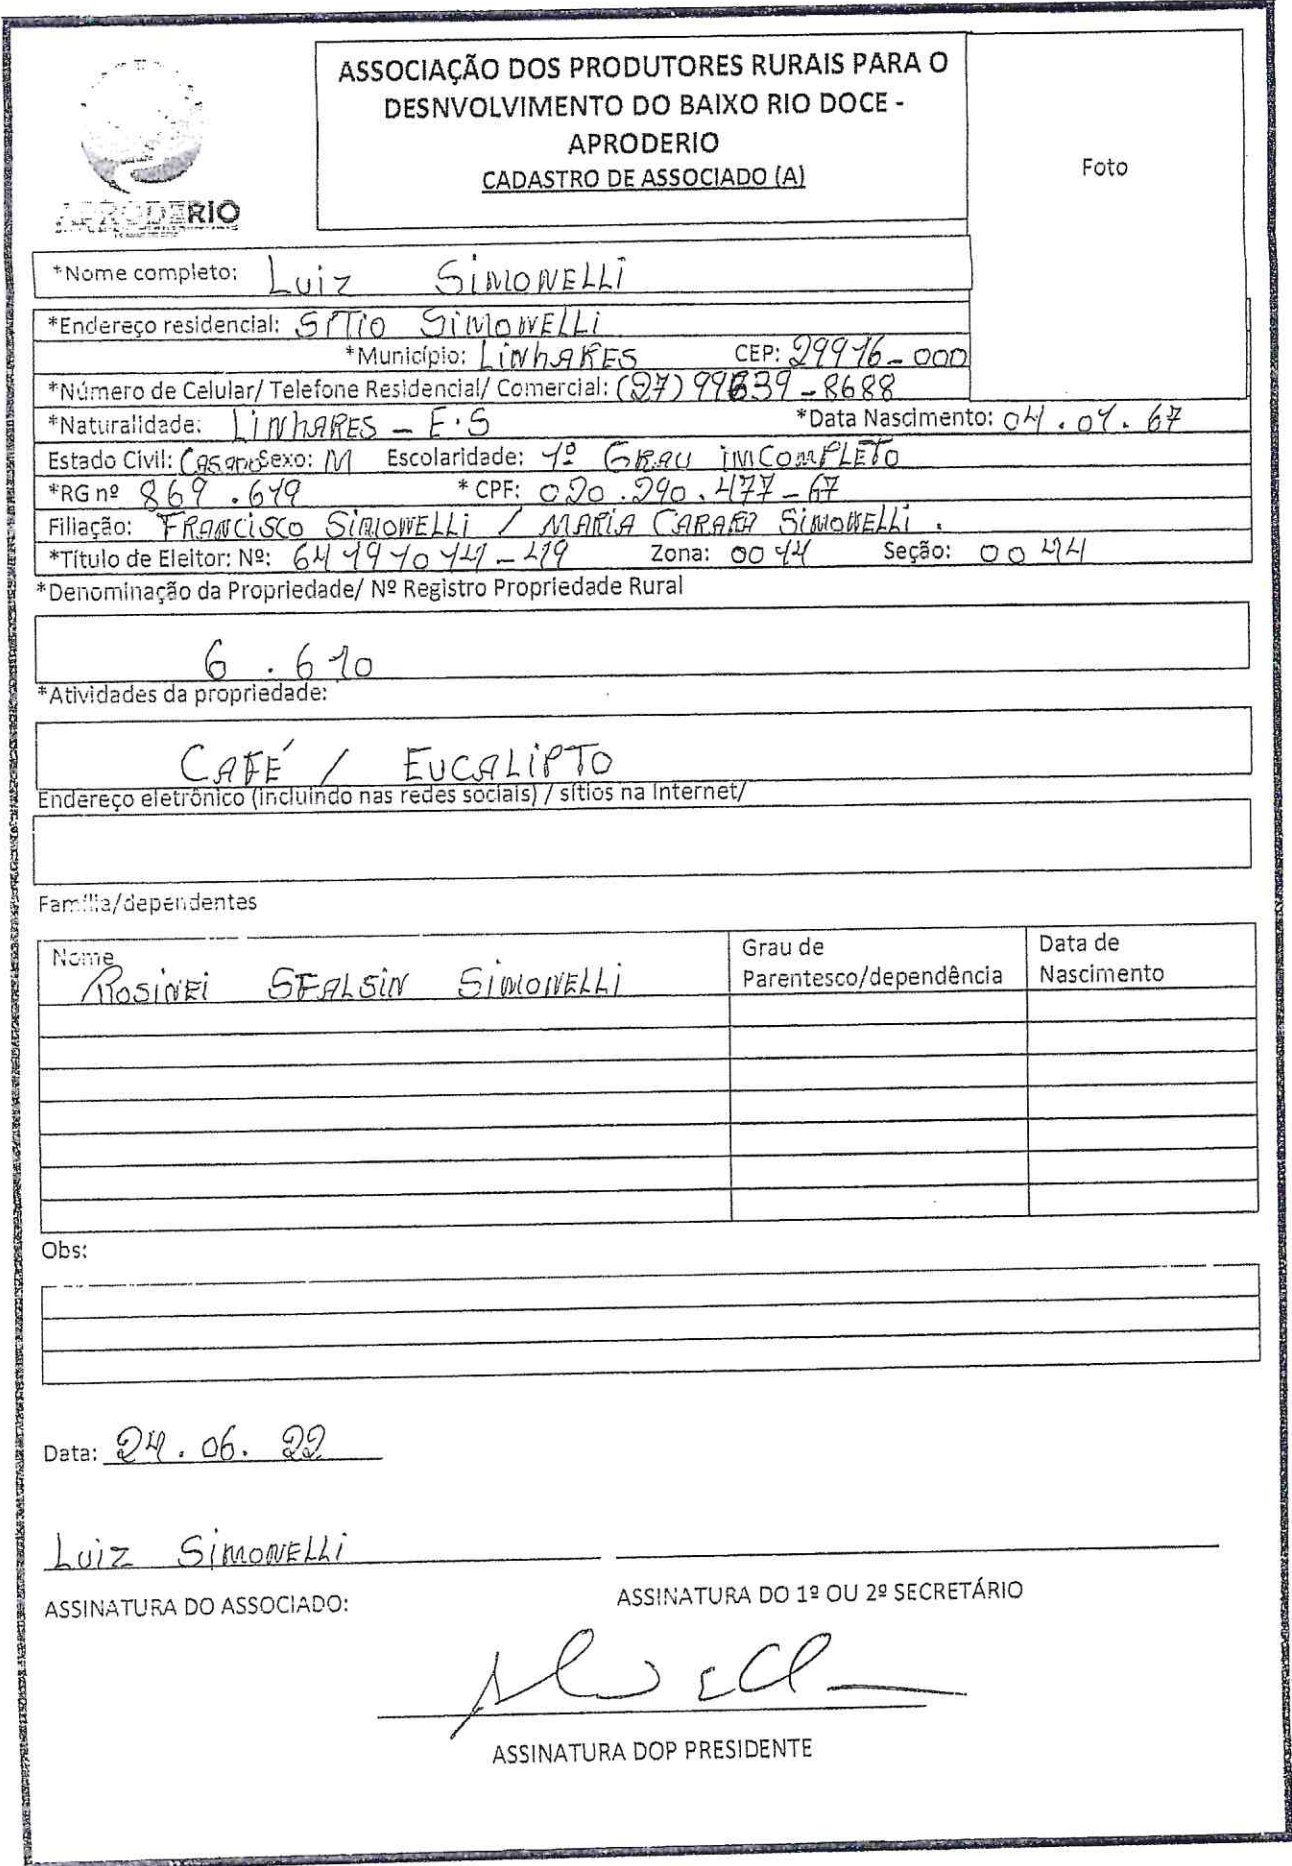 ASSOCIAÇÃO DOS PRODUTORES RURAIS PARA O
DESNVOLVIMENTO DO BAIXO RIO DOCE -
APRODERIO
CADASTRO DE ASSOCIADO (A)
Foto
APRODERIO
*Nome completo: Luiz SIMONELLI
*Endereço residencial: SÍTIO SIMONELLI
*Município: LINhARES CEP: 29916-000
*Número de Celular/ Telefone Residencial/ Comercial: (27) 99839-8688
*Naturalidade: LINhARES - E.S *Data Nascimento: 04.01.67
Estado Civil: CASADO Sexo: M Escolaridade: 1º GRAU IMCOMPLETO
*RG nº 869.619 * CPF: 020.290.477-67
Filiação: FRANCISCO SIMONELLI / MARIA SIMONELLI.
*Título de Eleitor: Nº: Zona: 0014 Seção: 0044
*Denominação da Propriedade/ Nº Registro Propriedade Rural
6.610
*Atividades da propriedade:
CAFÉ / EUCALIPTO
Endereço eletrônico (incluindo nas redes sociais) / sítios na Internet/
Família/dependentes
Nome Grau de Parentesco/dependência Data de Nascimento
ROSINEI SFALSIN SIMONELLI
Obs:
Data: 24.06.22
Luiz SIMONELLI
ASSINATURA DO ASSOCIADO: ASSINATURA DO 1º OU 2º SECRETÁRIO
ASSINATURA DOP PRESIDENTE